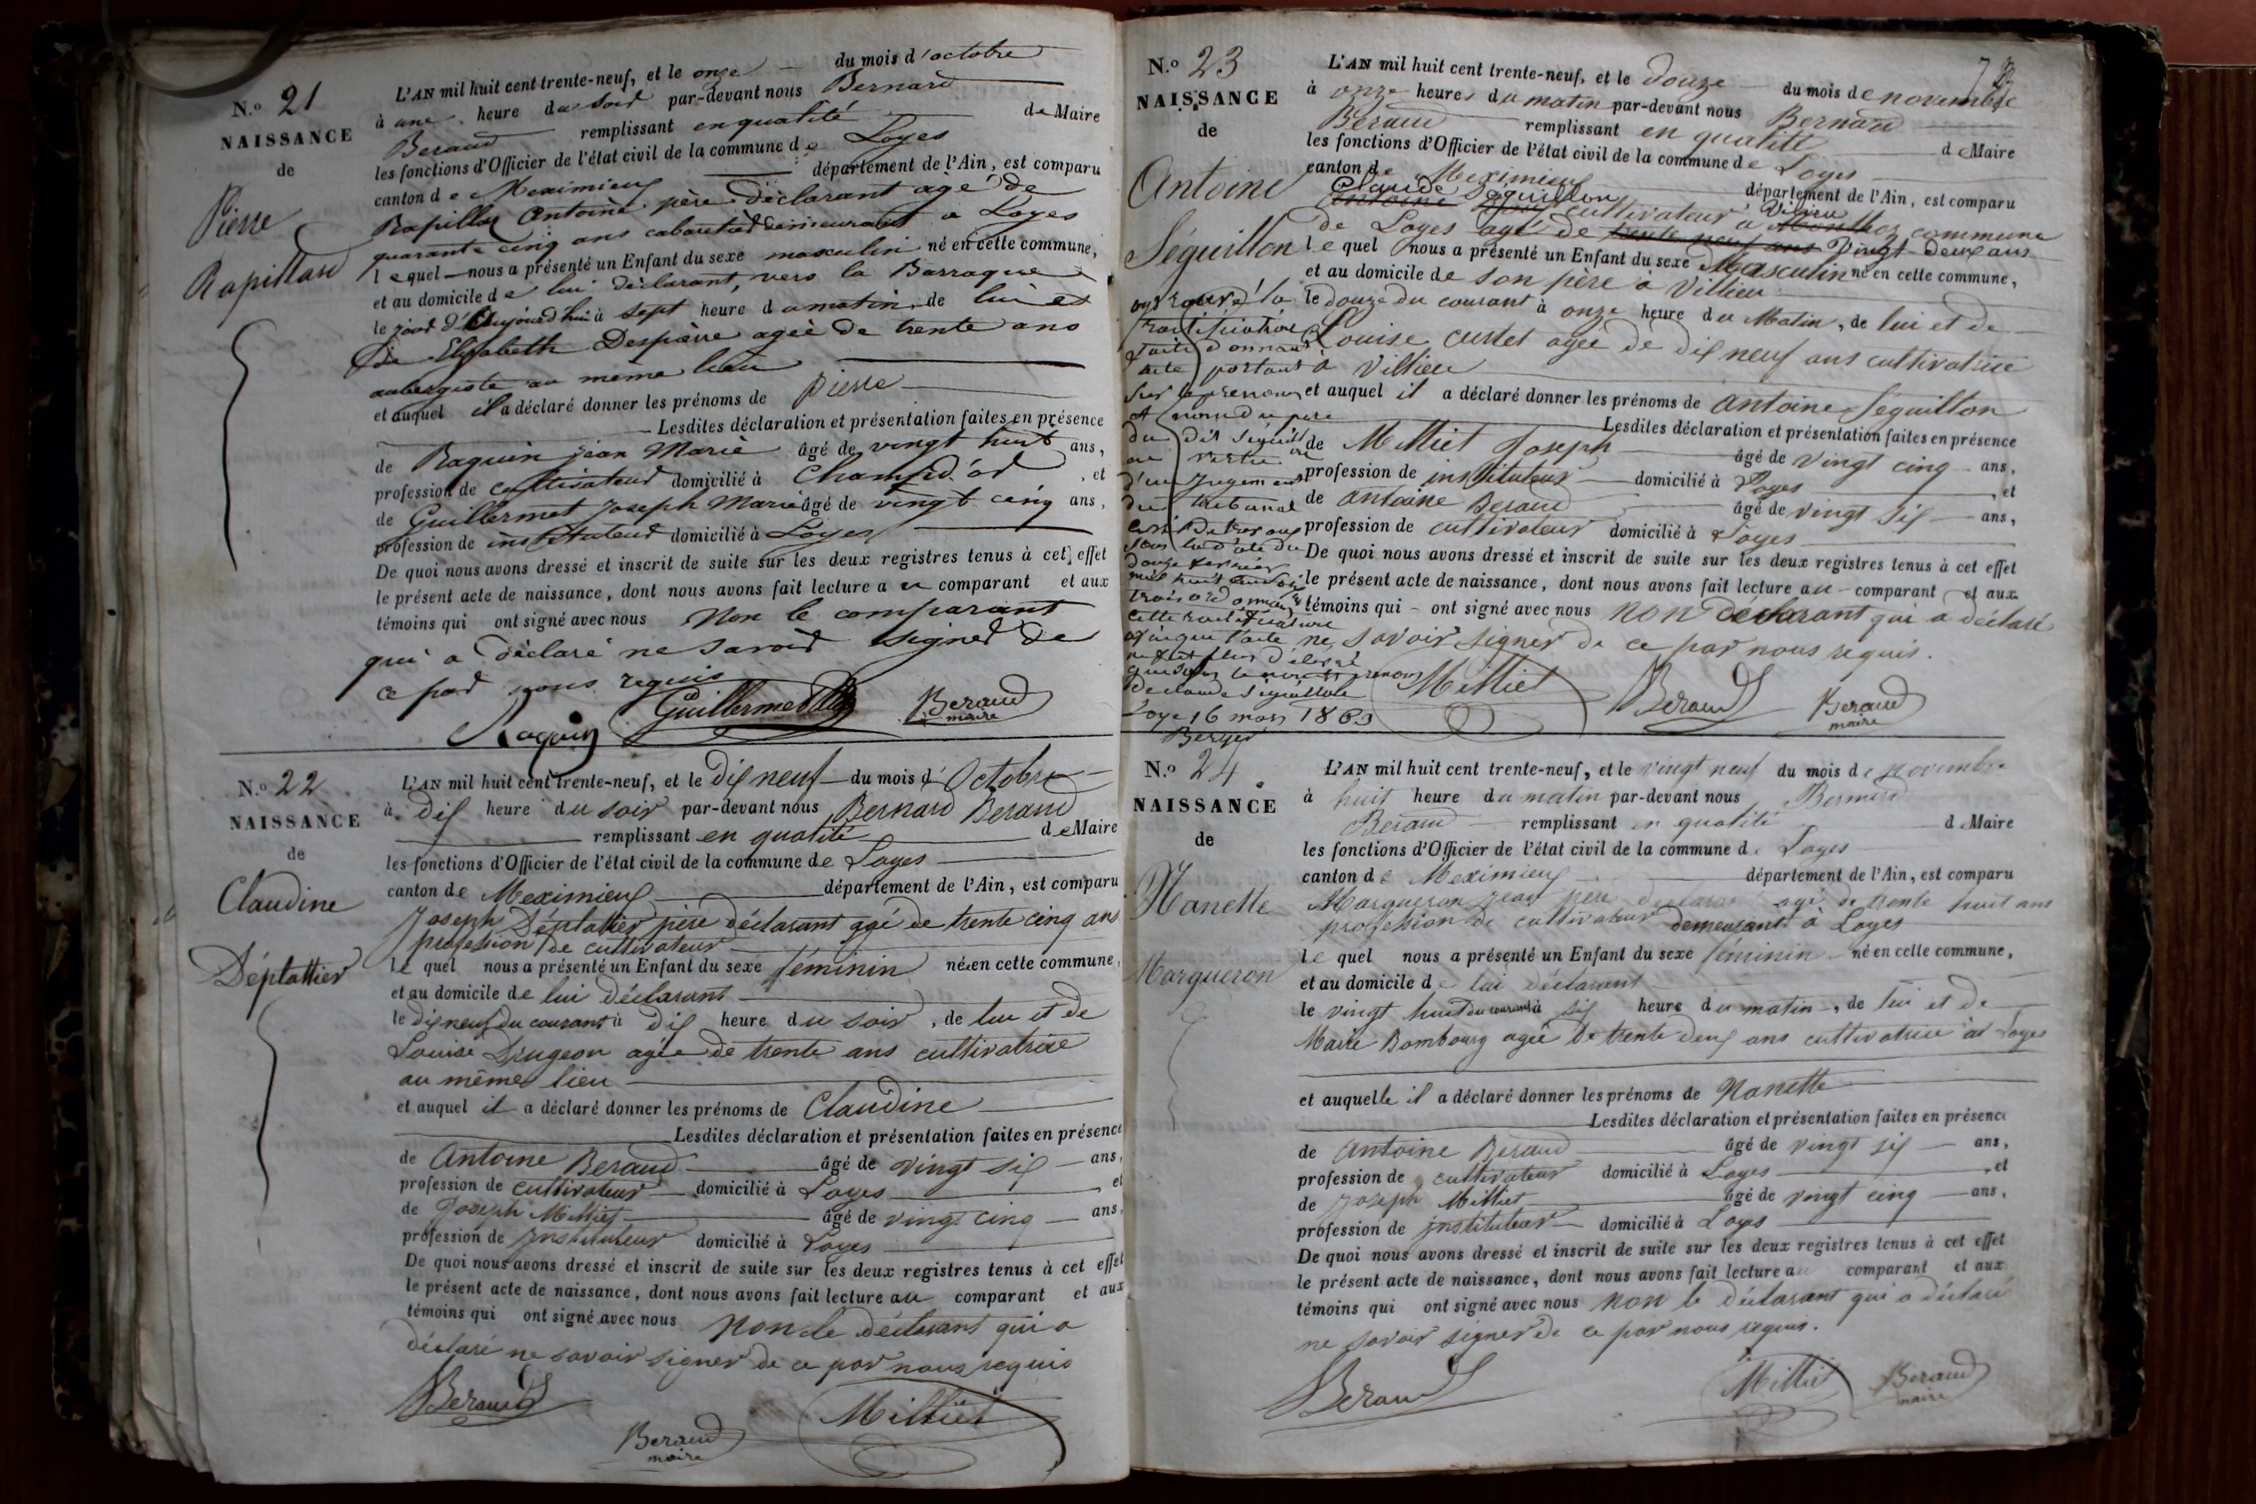 N.º 21
NAISSANCE
de
Pierre
Rapillard
L'AN mil huit cent trente-neuf, et le onze du mois d'octobre
à une heure du soir par-devant nous Bernard
Beraud remplissant en qualité de Maire
les fonctions d'Officier de l'état civil de la commune de Loyes
canton de Meximieux département de l'Ain, est comparu
Antoine père déclarant agé de
quarante cinq ans demeurant à Loyes
lequel nous a présenté un Enfant du sexe masculin né en cette commune,
et au domicile de lui déclarant, vers la Barraque
le jour d'aujourd'hui à sept heure du matin, de lui et
de Elisabeth agée de trente ans
aubergiste au même lieu
et auquel il a déclaré donner les prénoms de Pierre
Lesdites déclaration et présentation faites en présence
de Raquin jean Marie âgé de vingt huit ans,
profession de cultivateur domicilié à , et
de Guillermet Joseph Marie âgé de vingt cinq ans,
profession de instituteur domicilié à Loyes
De quoi nous avons dressé et inscrit de suite sur les deux registres tenus à cet effet
le présent acte de naissance, dont nous avons fait lecture au comparant et aux
témoins qui ont signé avec nous Non le comparant
qui a déclaré ne savoir signer de
ce par nous requis
Raquin Guillermet Beraud
maire
N.º 22
NAISSANCE
de
Claudine
Déplattier
L'AN mil huit cent trente-neuf, et le dix neuf du mois d'Octobre
à dix heure du soir par-devant nous Bernard Beraud
remplissant en qualité de Maire
les fonctions d'Officier de l'état civil de la commune de Loyes
canton de Meximieux département de l'Ain, est comparu
Joseph Déplattier père déclarant agé de trente cinq ans
profession de cultivateur
lequel nous a présenté un Enfant du sexe féminin née en cette commune,
et au domicile de lui déclarant
le dix neuf du courant à dix heure du soir, de lui et de
Louise agée de trente ans cultivatrice
au même lieu
et auquel il a déclaré donner les prénoms de Claudine
Lesdites déclaration et présentation faites en présence
de Antoine Beraud âgé de vingt six ans,
profession de cultivateur domicilié à Loyes, et
de Joseph Milliet âgé de vingt cinq ans,
profession de instituteur domicilié à Loyes
De quoi nous avons dressé et inscrit de suite sur les deux registres tenus à cet effet
le présent acte de naissance, dont nous avons fait lecture au comparant et aux
témoins qui ont signé avec nous Non le déclarant qui a
déclaré ne savoir signer de ce par nous requis
Beraud Milliet
Beraud
maire
N.º 23
NAISSANCE
de
Antoine
Séguillon
L'AN mil huit cent trente-neuf, et le douze du mois de novembre
à onze heures du matin par-devant nous Bernard
Beraud remplissant en qualité de Maire
les fonctions d'Officier de l'état civil de la commune de Loyes
canton de Meximieux département de l'Ain, est comparu
Claude Séguillon cultivateur à Villieu commune
de Loyes agé de vingt deux ans
lequel nous a présenté un Enfant du sexe Masculin né en cette commune,
et au domicile de son père à Villieu
le douze du courant à onze heure du Matin, de lui et de
Louise agée de dix neuf ans cultivatrice
à Villieu
et auquel il a déclaré donner les prénoms de Antoine Séguillon
Lesdites déclaration et présentation faites en présence
de Milliet Joseph âgé de vingt cinq ans,
profession de instituteur domicilié à Loyes, et
de Antoine Beraud âgé de vingt six ans,
profession de cultivateur domicilié à Loyes
De quoi nous avons dressé et inscrit de suite sur les deux registres tenus à cet effet
le présent acte de naissance, dont nous avons fait lecture au comparant et aux
témoins qui ont signé avec nous non déclarant qui a déclaré
ne savoir signer de ce par nous requis.
Milliet Beraud Beraud
maire
acte portant
sur le prenom
et nom du père
du dit
en vertu
d'un jugement
du tribunal
Loye 16 mars 1863
N.º 24
NAISSANCE
de
Nanette
Margueron
L'AN mil huit cent trente-neuf, et le vingt neuf du mois de novembre
à huit heure du matin par-devant nous Bernard
Beraud remplissant en qualité de Maire
les fonctions d'Officier de l'état civil de la commune de Loyes
canton de Meximieux département de l'Ain, est comparu
Margueron Jean père déclarant agé de trente huit ans
profession de cultivateur demeurant à Loyes
lequel nous a présenté un Enfant du sexe féminin né en cette commune,
et au domicile de lui déclarant
le vingt huit du courant à six heure du matin, de lui et de
Marie Bombourg agée de trente deux ans cultivatrice à Loyes
et auquelle il a déclaré donner les prénoms de Nanette
Lesdites déclaration et présentation faites en présence
de Antoine Beraud âgé de vingt six ans,
profession de cultivateur domicilié à Loyes, et
de Joseph Milliet âgé de vingt cinq ans,
profession de instituteur domicilié à Loyes
De quoi nous avons dressé et inscrit de suite sur les deux registres tenus à cet effet
le présent acte de naissance, dont nous avons fait lecture au comparant et aux
témoins qui ont signé avec nous non le déclarant qui a déclaré
ne savoir signer de ce par nous requis.
Beraud Milliet Beraud
maire